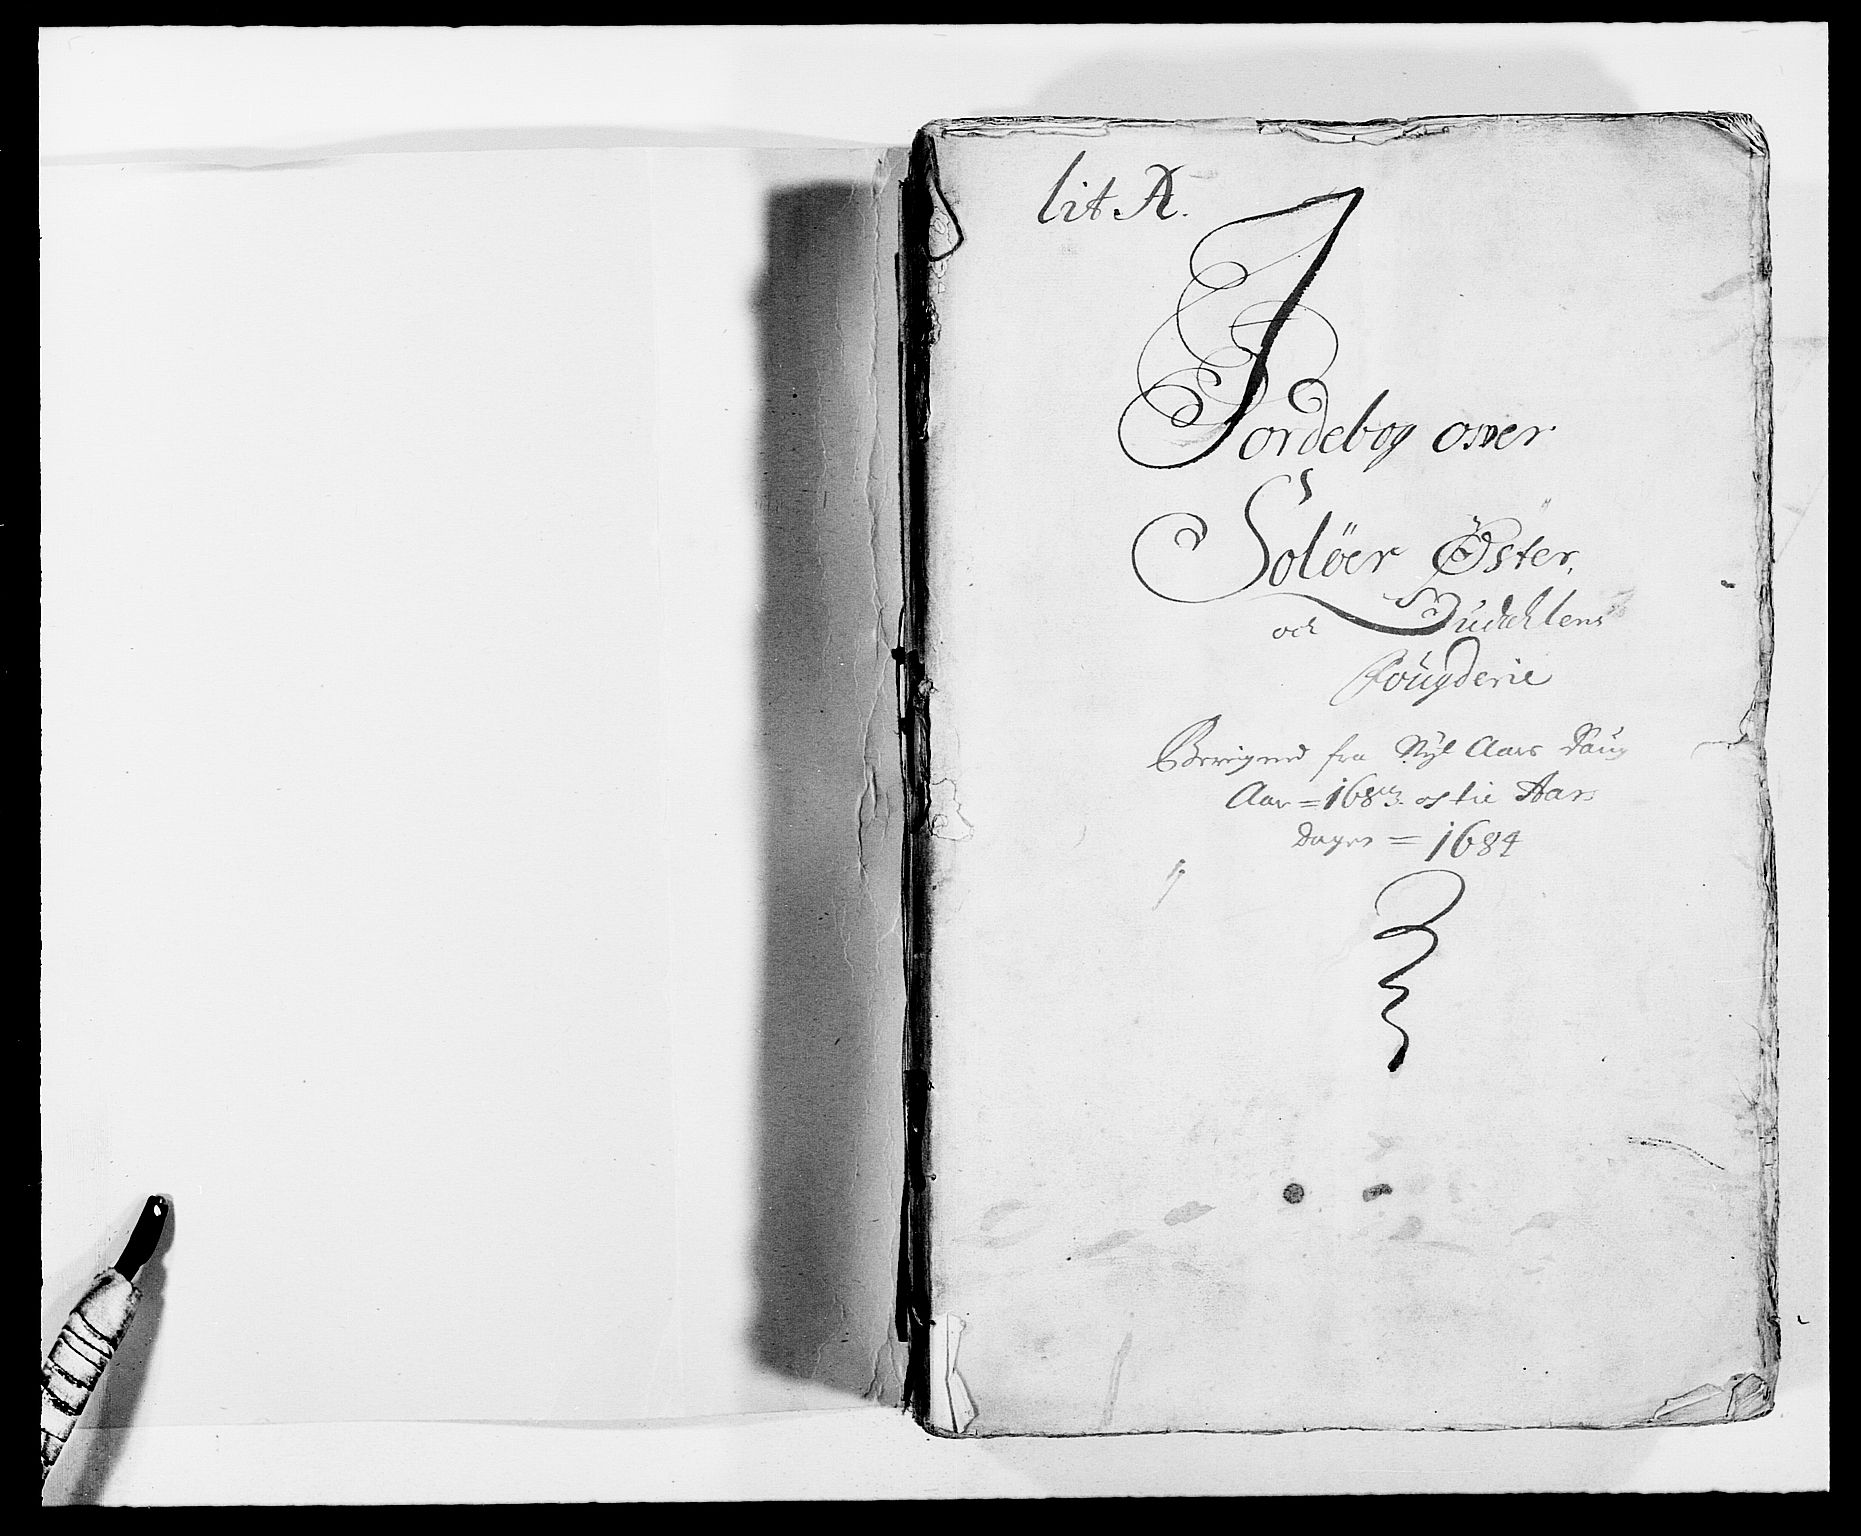 lit A.
Jordebog over
Solöer Öster,
och Dudahlens
Fougderie
Beregned fra Nyt Aars Daug
Aar = 1683. os tie Aars
Dages = 1684